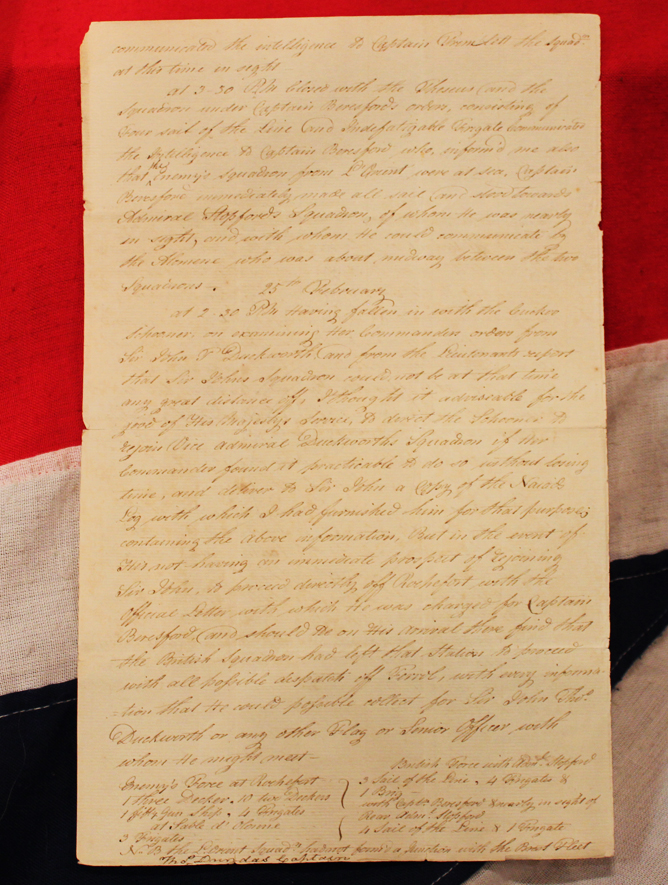 communicated the intelligence to Captain from left the Squadn
at this time in sight
at 3-30 PM Closed with the Theseus (and the
Squadron under Captain Beresford's orders, consisting of
Four sail of the Line (and Indefatigable Frigate Communicated
the Intelligence to Captain Beresford who, inform'd me also
that the Enemy's Squadron from L'Orient were at sea, Captain
Beresford immediately made all sail (and stood towards
Admiral Stopford's Squadron, of whom He was nearly
in sight, and with whom He could communicate by
the Alcmene who was about midway between the two
Squadrons -
25th February
at 2-30 PM Having fallen in with the Cuckoo
Schooner on examining Her Commanders orders from
Sir John T Duckworth (and from the Lieutenants report
that Sir Johns Squadron could not be at that time
any great distance off, I thought it adviseable for the
good of His Majesty's Service, to direct the Schooner to
rejoin Vice Admiral Duckworths Squadron if her
Commander found it practicable to do so, without losing
time, and deliver to Sir John a Copy of the Naiads
Log with which I had furnished him for that purpose;
containing the above information, But in the event of
His not having an immediate prospect of rejoining
Sir John, to proceed directly off Rochefort with the
Official Letter with which He was charged for Captain
Beresford, (and should He on His arrival there find that
the British Squadron had left that Station to proceed
with all possible despatch off Ferrol, with every informa-
-tion that He could possible collect for Sir John Thos
Duckworth or any other Flag or Senior Officer with
whom He might meet -
Enemy's Force at Rochefort
1 Three Decker. 10 two Deckers
1 Gun Ship, 4 Frigates
at Sable d' Olonne
3 Frigates
British Force with Adml Stopford
3 Sail of the Line, 4 Frigates &
1 Brig
with Captn Beresford & nearly in sight of
Rear Adml Stopford
4 Sail of the Line & 1 Frigate
N.B the L'Orient Squadn had not form'd a Junction with the Brest Fleet
Thos Dundas Captain